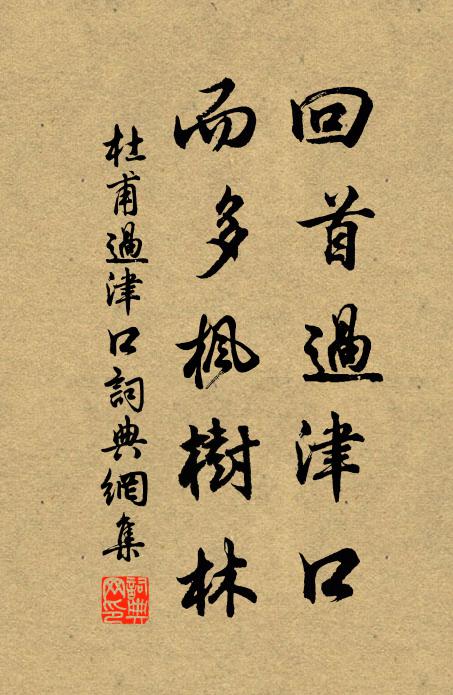 回首過津口
而多楓樹林
杜甫過津口詞典網集
詞典網印